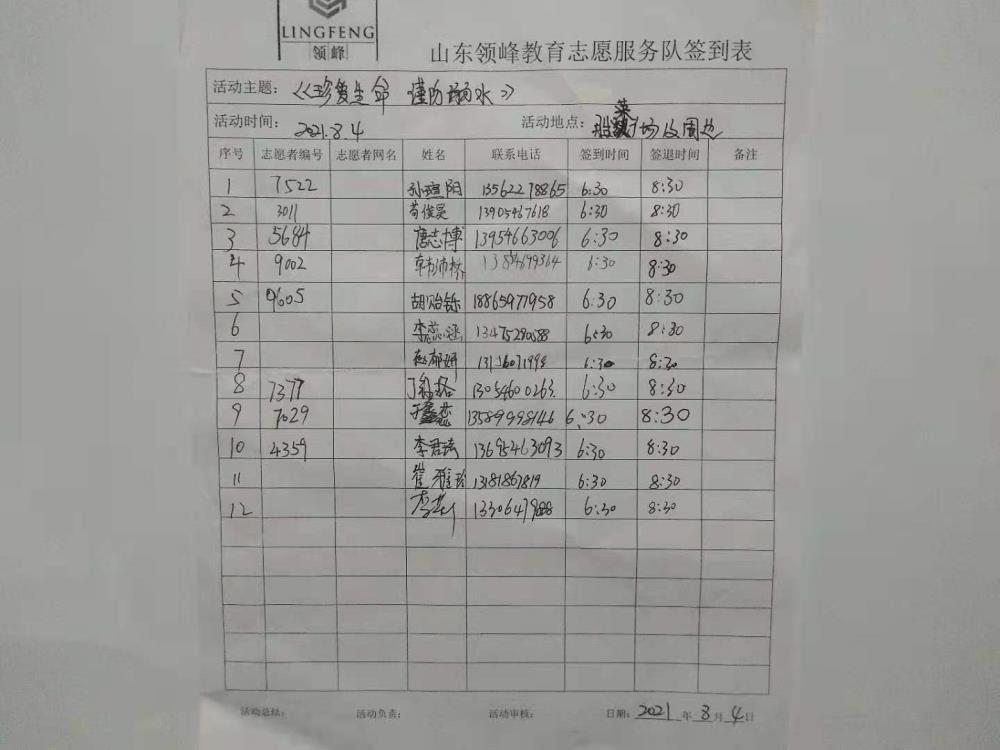 LINGFENG
领峰
山东领峰教育志愿服务队签到表
活动主题：《珍爱生命 谨防溺水》
活动时间：2021.8.4 活动地点：广场及周边
序号 志愿者编号 志愿者网名 姓名 联系电话 签到时间 签退时间 备注
1 7522 孙瑄阳 13562278865 6:30 8:30
2 3011 苟俊昊 13905467618 6:30 8:30
3 5684 唐志博 13954663006 6:30 8:30
4 9002 6:30 8:30
5 9605 胡贻铄 18865977958 6:30 8:30
6 李蕊涵 6:30 8:30
7 6:30 8:30
8 7377 13054600263 6:30 8:30
9 7029 13589998146 6:30 8:30
10 4359 李君 13695463093 6:30 8:30
11 崔雅玲 13181867819 6:30 8:30
12 6:30 8:30
活动总结： 活动负责： 活动审核： 日期：2021年8月4日